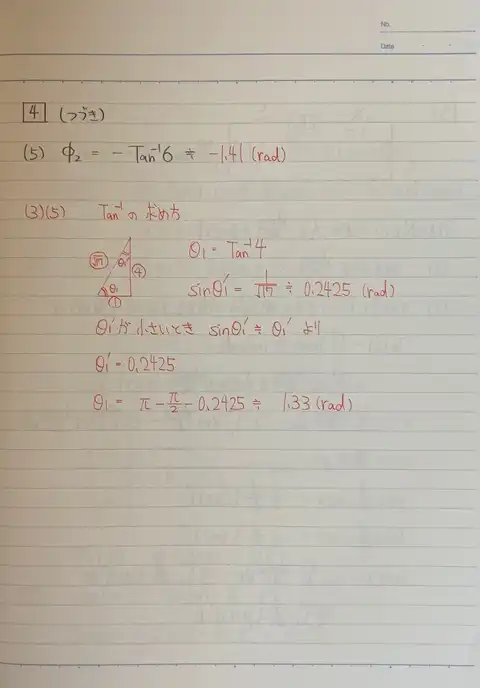 No.
Date
4 (つづき)
(5) Φ₂ = - Tan⁻¹6 ≒ -1.41 (rad)
(3)(5) Tan⁻¹ の 求め方
θ₁ = Tan⁻¹4
√17 θ₁' ④
sinθ₁' = 1/√17 ≒ 0.2425 (rad)
θ₁ ①
θ₁'が小さいとき sinθ₁' ≒ θ₁' より
θ₁' = 0.2425
θ₁ = π - π/2 - 0.2425 ≒ 1.33 (rad)